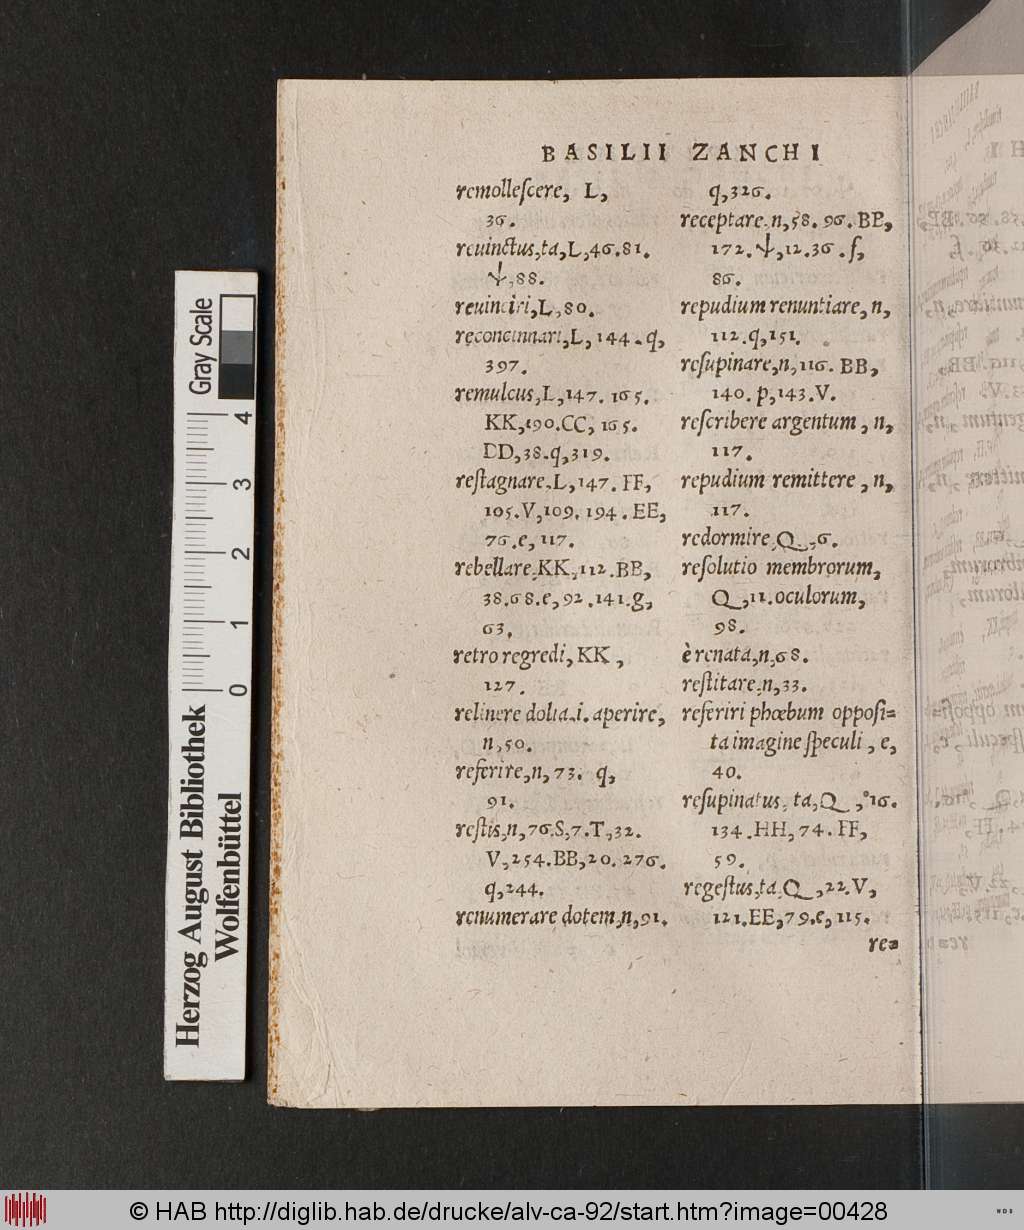 BASILII ZANCHI
remolleſcere, L,
36.
reuinctus,ta,L,46.81.
Ψ,88.
reuinciri,L,80.
reconcinnari,L,144.q,
397.
remulcus,L,147.165.
KK,190.CC,165.
DD,38.q,319.
reſtagnare,L,147.FF,
105.V,109.194.EE,
76.e,117.
rebellare,KK,112.BB,
38.68.e,92.141.g,
63.
retro regredi,KK,
127.
relinere dolia.i.aperire,
n,50.
referire,n,73. q,
91.
reſtis,n,76.S,7.T,32.
V,254.BB,20.276.
q,244.
renumerare dotem,n,91.
q,326.
receptare,n,58.96.BB,
172.Ψ,12.36.ſ,
86.
repudium renuntiare,n,
112.q,151.
reſupinare,n,116.BB,
140.p,143.V.
reſcribere argentum,n,
117.
repudium remittere,n,
117.
redormire,Q,6.
reſolutio membrorum,
Q,11.oculorum,
98.
è renata,n,68.
reſtitare,n,33.
referiri phœbum oppoſi=
ta imagine ſpeculi,e,
40.
reſupinatus,ta,Q,16.
134.HH,74.FF,
59.
regeſtus,ta,Q,22.V,
121.EE,79.e,115.
re=
Gray Scale
4
3
2
1
0
Herzog August Bibliothek
Wolfenbüttel
© HAB http://diglib.hab.de/drucke/alv-ca-92/start.htm?image=00428
digilib
WDB